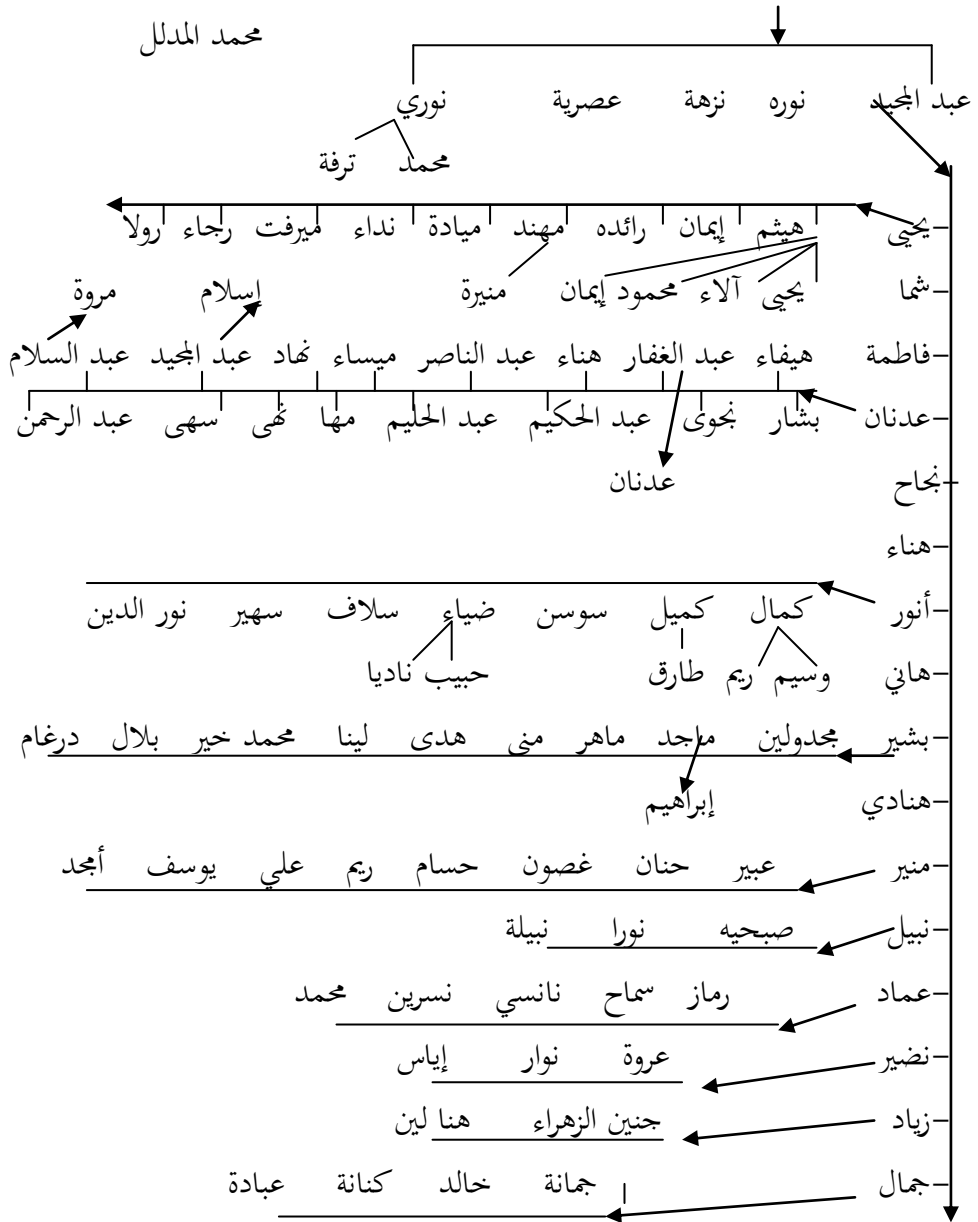 محمد المدلل
عبد المجيد نوره نزهة عصرية نوري
محمد ترفة
يحيى هيثم إيمان رائده مهند ميادة نداء ميرفت رجاء رولا
شما يحيى آلاء محمود إيمان منيرة إسلام مروة
فاطمة هيفاء عبد الغفار هناء عبد الناصر ميساء نهاد عبد المجيد عبد السلام
عدنان بشار نجوى عبد الحكيم عبد الحليم مها نهى سهى عبد الرحمن
نجاح عدنان
هناء
أنور كمال كميل سوسن ضياء سلاف سهير نور الدين
هاني وسيم ريم طارق حبيب ناديا
بشير مجدولين ماجد ماهر منى هدى لينا محمد خير بلال درغام
هنادي إبراهيم
منير عبير حنان غصون حسام ريم علي يوسف أمجد
نبيل صبحيه نورا نبيلة
عماد رماز سماح نانسي نسرين محمد
نضير عروة نوار إياس
زياد جنين الزهراء هنا لين
جمال جمانة خالد كنانة عبادة